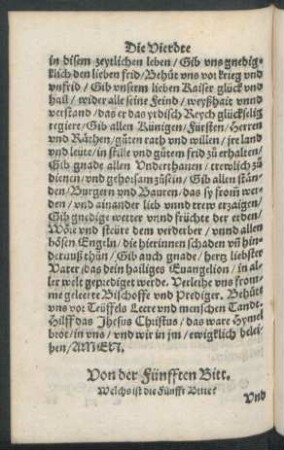 Die Vierdte
in disem zeytlichen leben / Gib vns gnedig-
klich den lieben frid / Behüt vns vor krieg vnd
vnfrid / Gib vnserm lieben Kaiser glück vnd
hail / wider alle seine Feind / weyßhait vnnd
verstand / das er das yrdisch Reych glückselig
regiere / Gib allen Künigen / Fürsten / Herren
vnd Räthen / güten rath vnd willen / jre land
vnd leute / in stille vnd gütem frid zü erhalten /
Gib gnade allen Vnderthanen / trewlich zü
dienen / vnd gehorsam züsein / Gib allen stän-
den / Burgern vnd Bauren / das sy from wer-
den / vnd ainander lieb vnnd trew erzaigen /
Gib gnedige wetter vnnd früchte der erden /
Wöre vnd steüre dem verderber / vnnd allen
bösen Engeln / die hierinnen schaden vñ hin-
dernuß thün / Gib auch gnade / hertz liebster
Vater / das dein hailiges Euangelion / in al-
ler welt geprediget werde. Verleihe vns from-
me geleerte Bischoffe vnd Prediger. Behüte
vns vor Teüffels Leere vnd menschen Tandt.
Hilff das Jhesus Christus / das ware Hymel
brot / in vns / vnd wir in jm / ewigklich belei-
ben / AMEN.
Von der Fünfften Bitt.
Wölchs ist die Fünfft Bitte?
Vnd